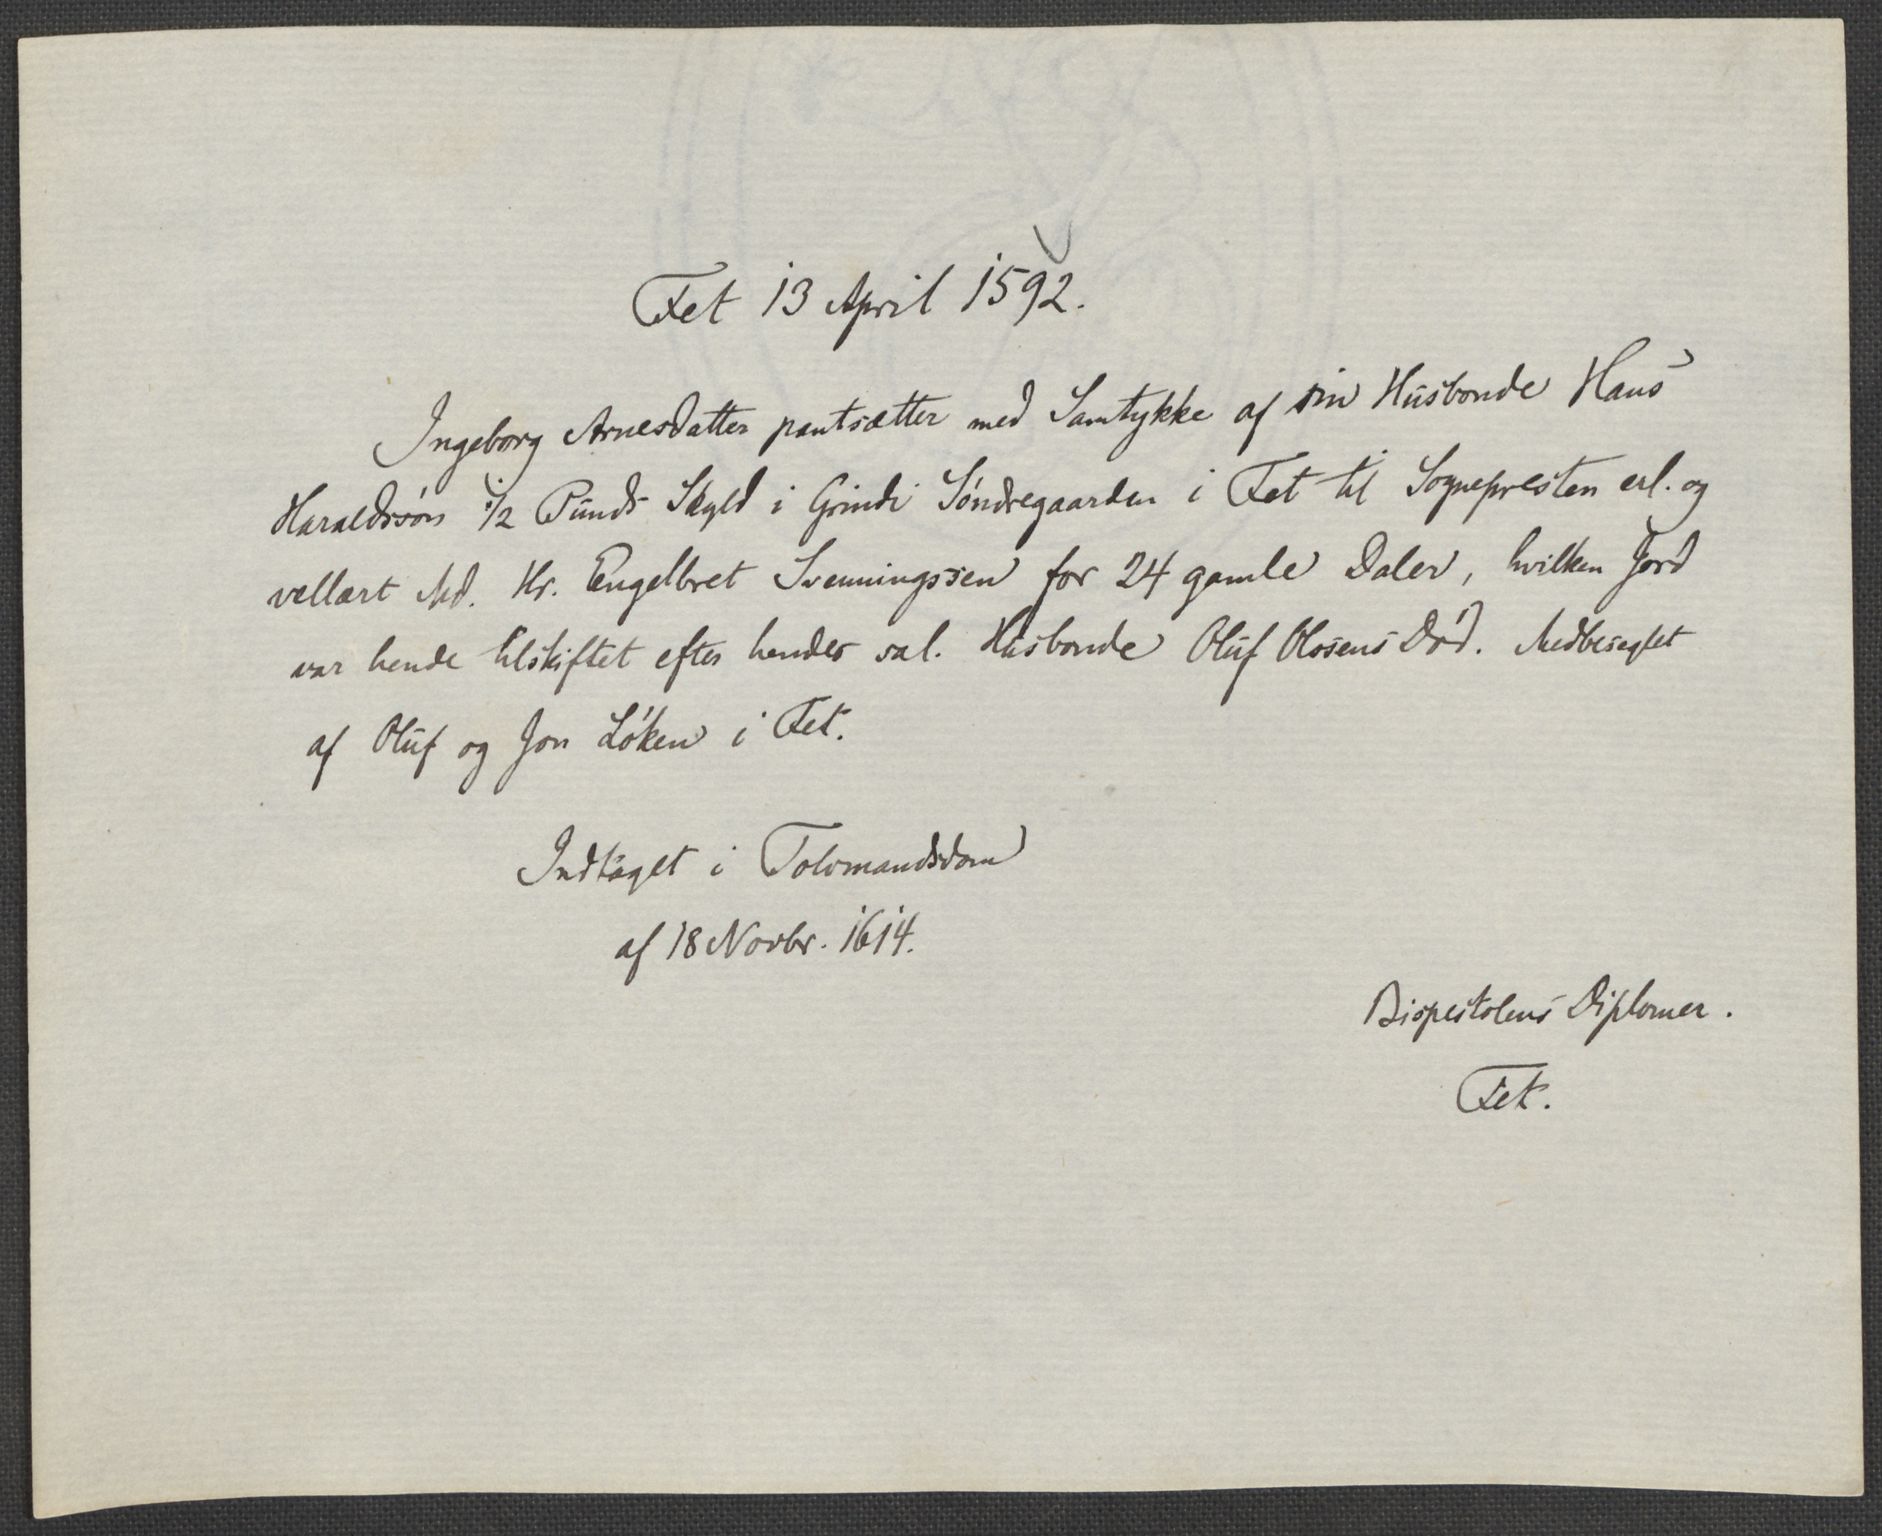 Fet 13 April 1592.
Ingeborg Arnesdatter pantsætter med Samtykke af sin Husbonde Hans
Haraldssön 1/2 Punds Skyld i Grindi Söndregaarden i Fet til Sognepresten erl. og
vellært Md. Hr. Engelbret Svenningssen for 24 gamle Daler, hvilken Jord
var hende tilskiftet efter hendes sal. Husbonde Oluf Olssens Död. Medbeseglet
af Oluf og Jon Löken i Fet.
Indtaget i Tolvmandsdom
af 18 Novbr. 1614.
Bispestolens Diplomer.
Fet.